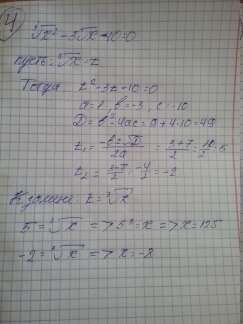 4
∛x² - 3∛x - 10 = 0
пусть ∛x = t
Тогда t² - 3t - 10 = 0
a = 1, b = -3, c = -10
D = b² - 4ac = 9 + 4·10 = 49
t₁ = (-b ± √D)/2a = (3+7)/2 = 10/2 = 5
t₂ = (3-7)/2 = -4/2 = -2
К замене t = ∛x
5 = ∛x => 5³ = x => x = 125
-2 = ∛x => x = -8